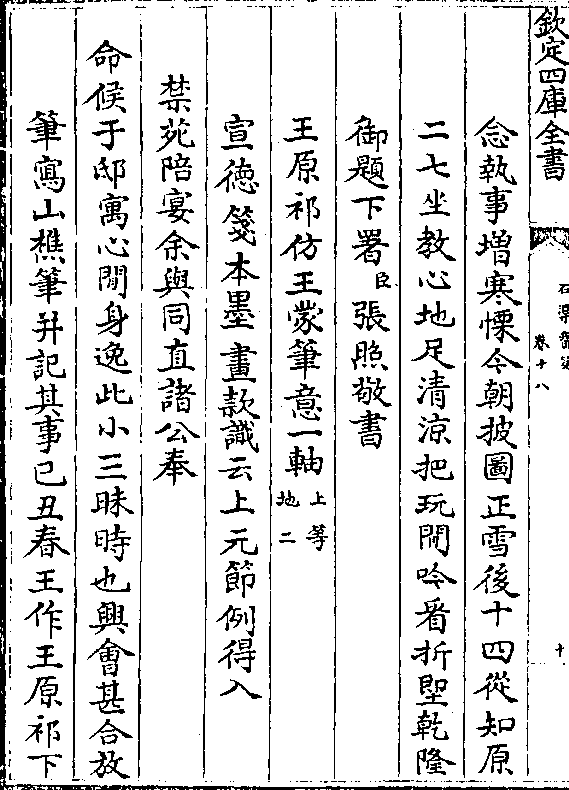 欽定四庫全書
石渠寶笈
卷十八
十
念執事增寒慄今朝披圖正雪後十四從知原
二七坐教心地足清涼把玩閒吟看折聖乾隆
御題下署臣張照敬書
王原祁仿王蒙筆意一軸上等地二
宣徳箋本墨畫款識云上元節例得入
禁苑陪宴余與同直諸公奉
命候于邸寓心閒身逸此小三昧時也興會甚合放
筆寫山樵筆并記其事己丑春王作王原祁下